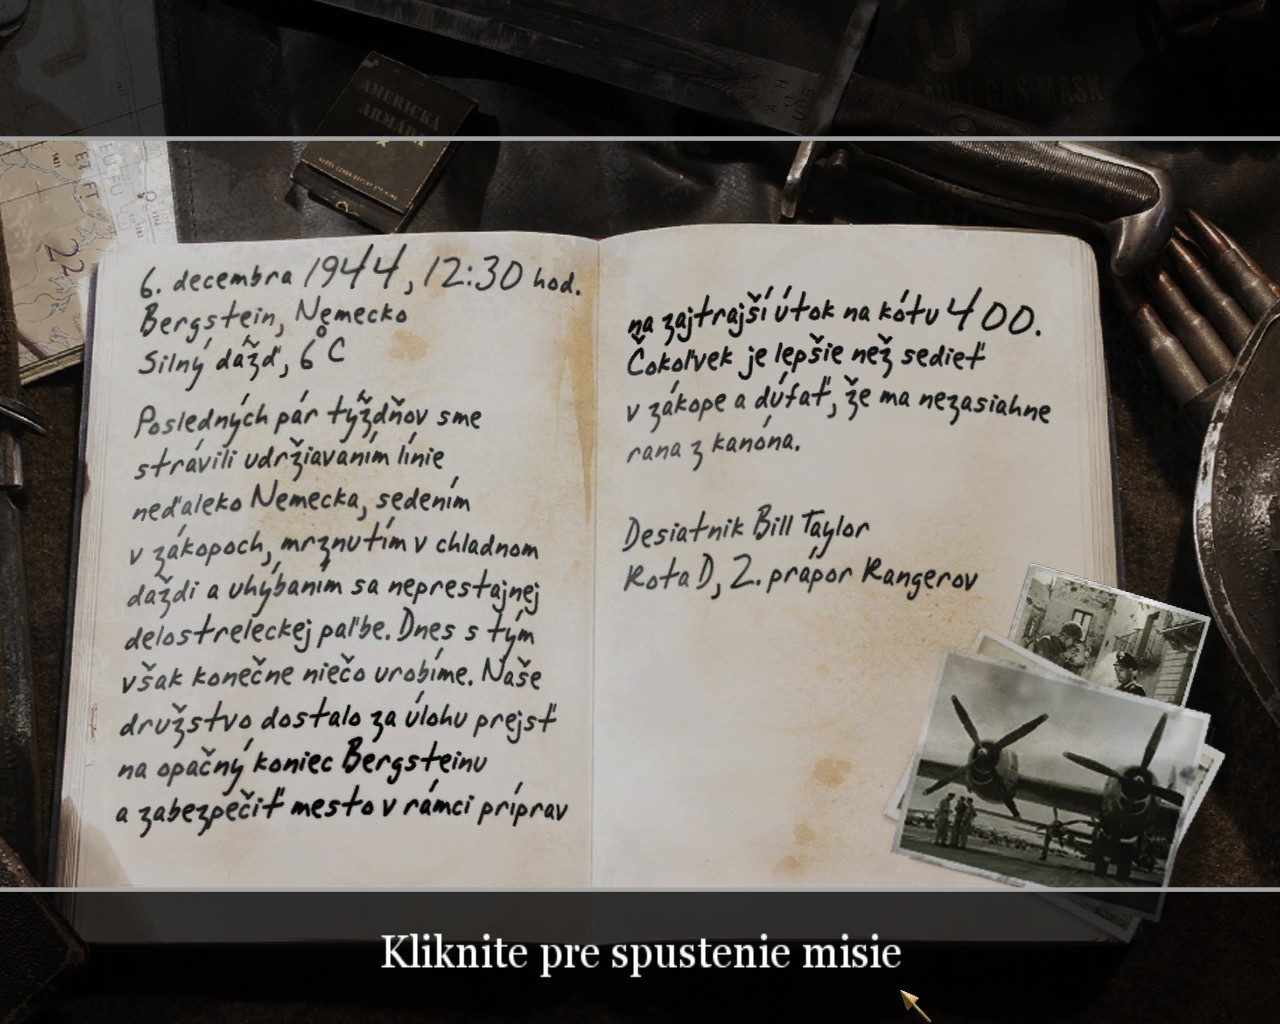 AMERICKÁ
ARMÁDA
6. decembra 1944, 12:30 hod.
Bergstein, Nemecko
Silný dážď, 6°C
Posledných pár týždňov sme
strávili udržiavaním línie
neďaleko Nemecka, sedením
v zákopoch, mrznutím v chladnom
daždi a uhýbaním sa neprestajnej
delostreleckej paľbe. Dnes s tým
však konečne niečo urobíme. Naše
družstvo dostalo za úlohu prejsť
na opačný koniec Bergsteinu
a zabezpečiť mesto v rámci príprav
na zajtrajší útok na kótu 400.
Čokoľvek je lepšie než sedieť
v zákope a dúfať, že ma nezasiahne
rana z kanóna.
Desiatnik Bill Taylor
Rota D, 2. prápor Rangerov
Kliknite pre spustenie misie